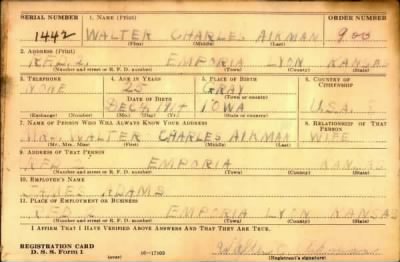 SERIAL NUMBER 1. NAME (Print) ORDER NUMBER
1442 WALTER CHARLES AIKMAN 900
(First) (Middle) (Last)
2. ADDRESS (Print)
EMPORIA LYON KANSAS
(Number and street or R. F. D. number) (Town) (County) (State)
3. TELEPHONE 4. AGE IN YEARS 5. PLACE OF BIRTH 6. COUNTRY OF CITIZENSHIP
NONE 25 GRAY
DATE OF BIRTH (Town or county)
DEC IOWA U.S.A.
(Exchange) (Number) (Mo.) (Day) (Yr.) (State or country)
7. NAME OF PERSON WHO WILL ALWAYS KNOW YOUR ADDRESS 8. RELATIONSHIP OF THAT PERSON
MRS. WALTER CHARLES AIKMAN WIFE
(Mr., Mrs., Miss) (First) (Middle) (Last)
9. ADDRESS OF THAT PERSON
EMPORIA KANSAS
(Number and street or R. F. D. number) (Town) (County) (State)
10. EMPLOYER'S NAME
JAMES ADAMS
11. PLACE OF EMPLOYMENT OR BUSINESS
EMPORIA LYON KANSAS
(Number and street or R. F. D. number) (Town) (County) (State)
I AFFIRM THAT I HAVE VERIFIED ABOVE ANSWERS AND THAT THEY ARE TRUE.
REGISTRATION CARD
D. S. S. Form 1 (over)
(Registrant's signature)